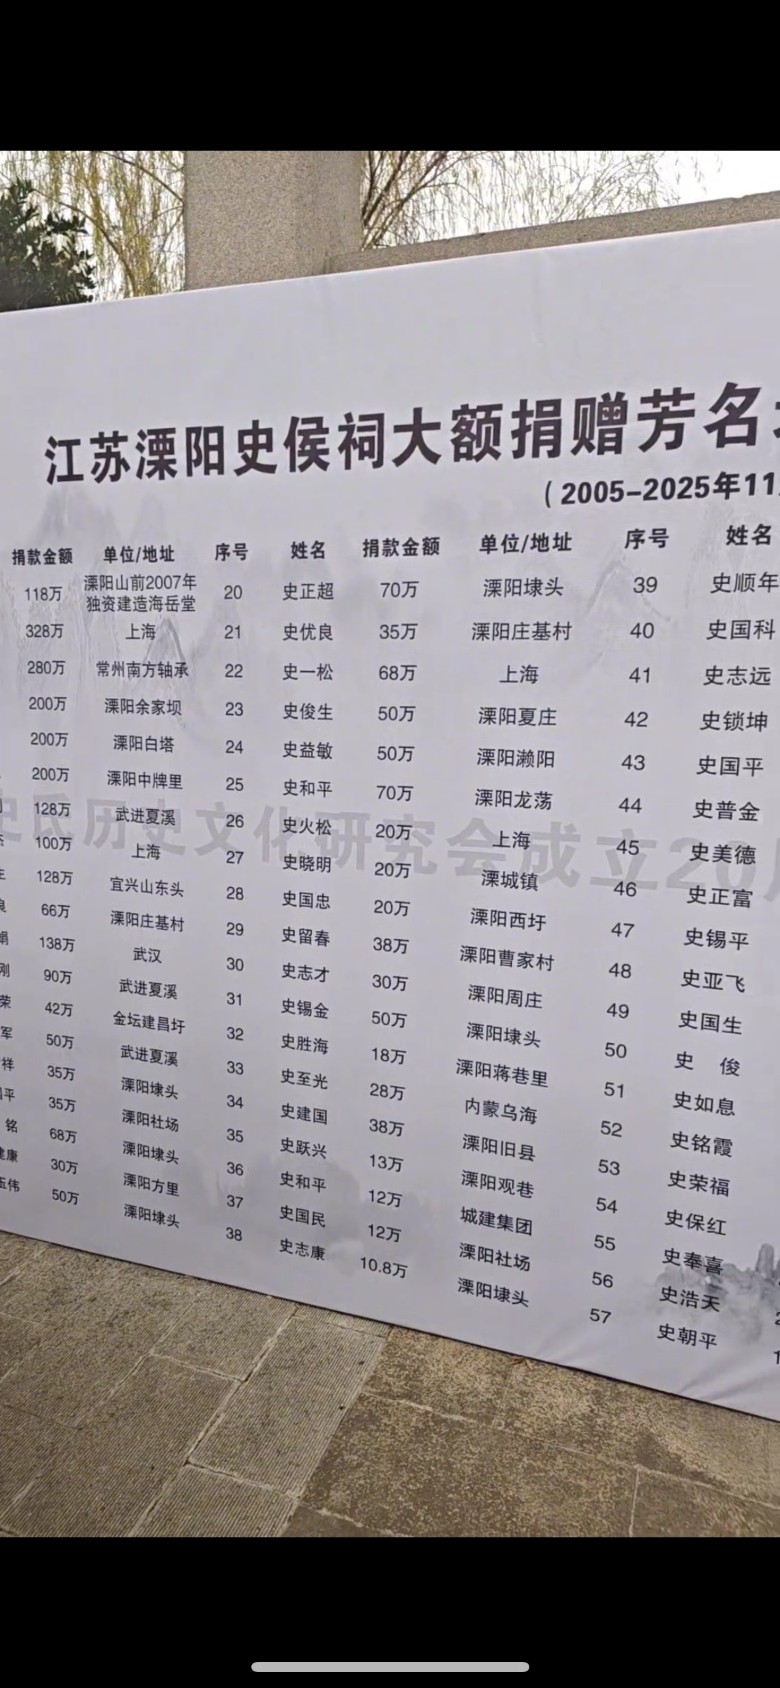 江苏溧阳史侯祠大额捐赠芳名
(2005-2025年11
捐款金额 单位/地址 序号 姓名 捐款金额 单位/地址 序号 姓名
118万 溧阳山前2007年独资建造海岳堂 20 史正超 70万 溧阳埭头 39 史顺年
328万 上海 21 史优良 35万 溧阳庄基村 40 史国科
280万 常州南方轴承 22 史一松 68万 上海 41 史志远
200万 溧阳余家坝 23 史俊生 50万 溧阳夏庄 42 史锁坤
200万 溧阳白塔 24 史益敏 50万 溧阳濑阳 43 史国平
200万 溧阳中牌里 25 史和平 70万 溧阳龙荡 44 史普金
128万 武进夏溪 26 史火松 20万 上海 45 史美德
史氏历史文化研究会成立20
100万 上海 27 史晓明 20万 溧城镇 46 史正富
128万 宜兴山东头 28 史国忠 20万 溧阳西圩 47 史锡平
良 66万 溧阳庄基村 29 史留春 38万 溧阳曹家村 48 史亚飞
娟 138万 武汉 30 史志才 30万 溧阳周庄 49 史国生
刚 90万 武进夏溪 31 史锡金 50万 溧阳埭头 50 史 俊
荣 42万 金坛建昌圩 32 史胜海 18万 溧阳蒋巷里 51 史如息
军 50万 武进夏溪 33 史至光 28万 内蒙乌海 52 史铭霞
祥 35万 溧阳埭头 34 史建国 38万 溧阳旧县 53 史荣福
平 35万 溧阳社场 35 史跃兴 13万 溧阳观巷 54 史保红
铭 68万 溧阳埭头 36 史和平 12万 城建集团 55 史奉喜
康 30万 溧阳方里 37 史国民 12万 溧阳社场 56 史浩天
伟 50万 溧阳埭头 38 史志康 10.8万 溧阳埭头 57 史朝平